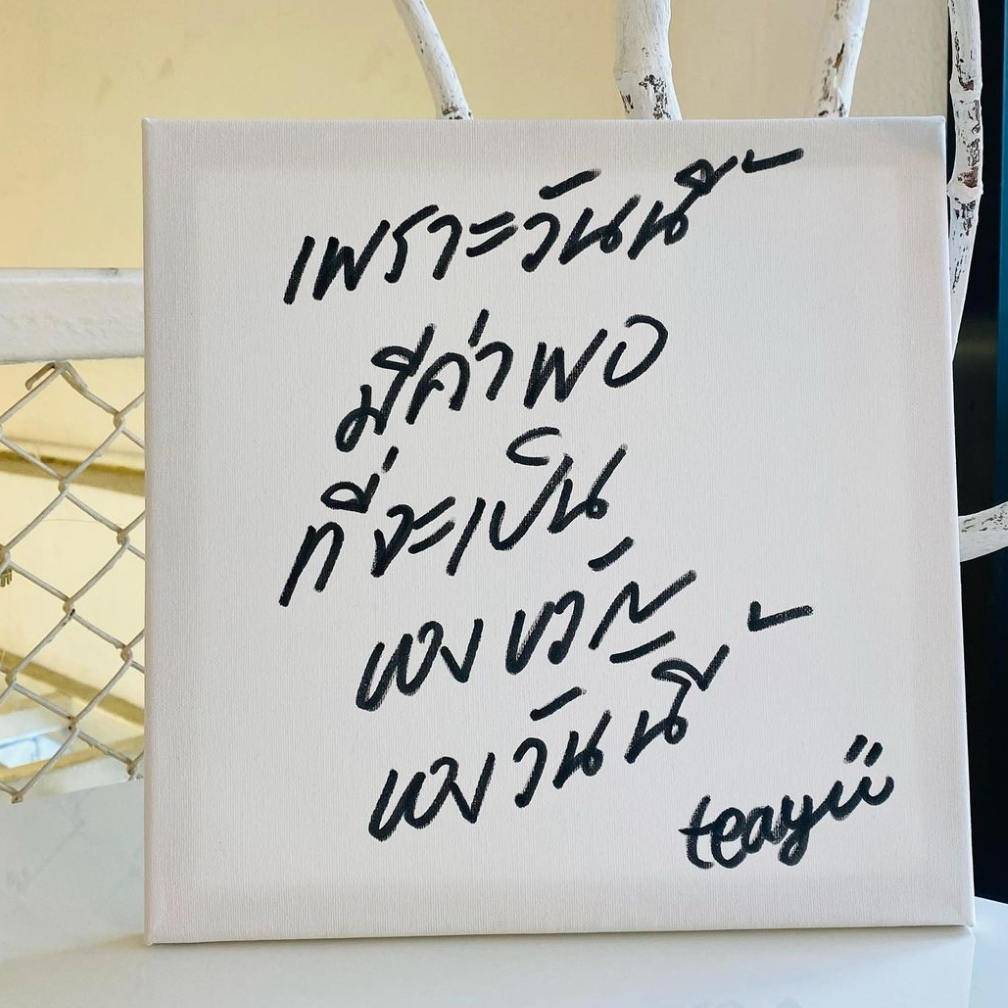 เพราะวันนี้
มีค่าพอ
ที่จะเป็น
ของขวัญ
ของวันนี้
teayii